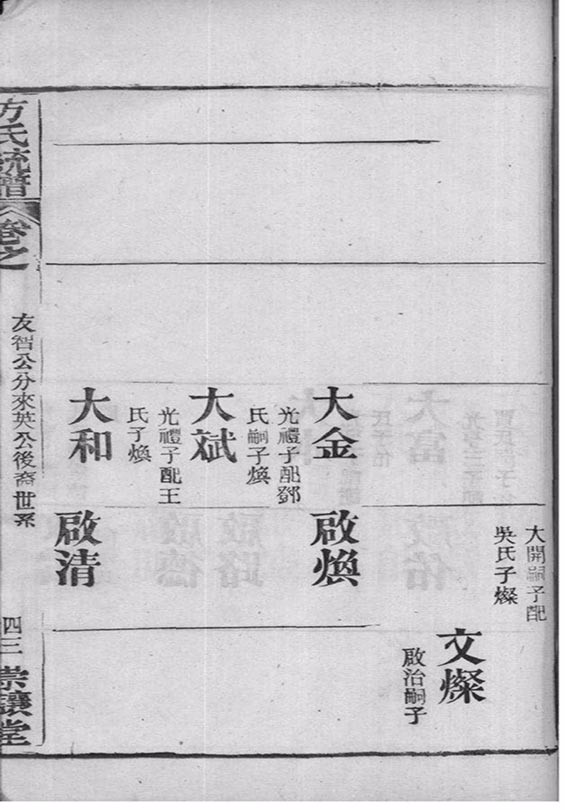 大開嗣子配
吳氏子燦
文燦
啟治嗣子
大金
啟煥
光禮子配鄧
氏嗣子煥
大斌
光禮子配王
氏子煥
大和
啟清
方氏統譜
卷之
友智公分來英公後裔世系
四三
崇讓堂